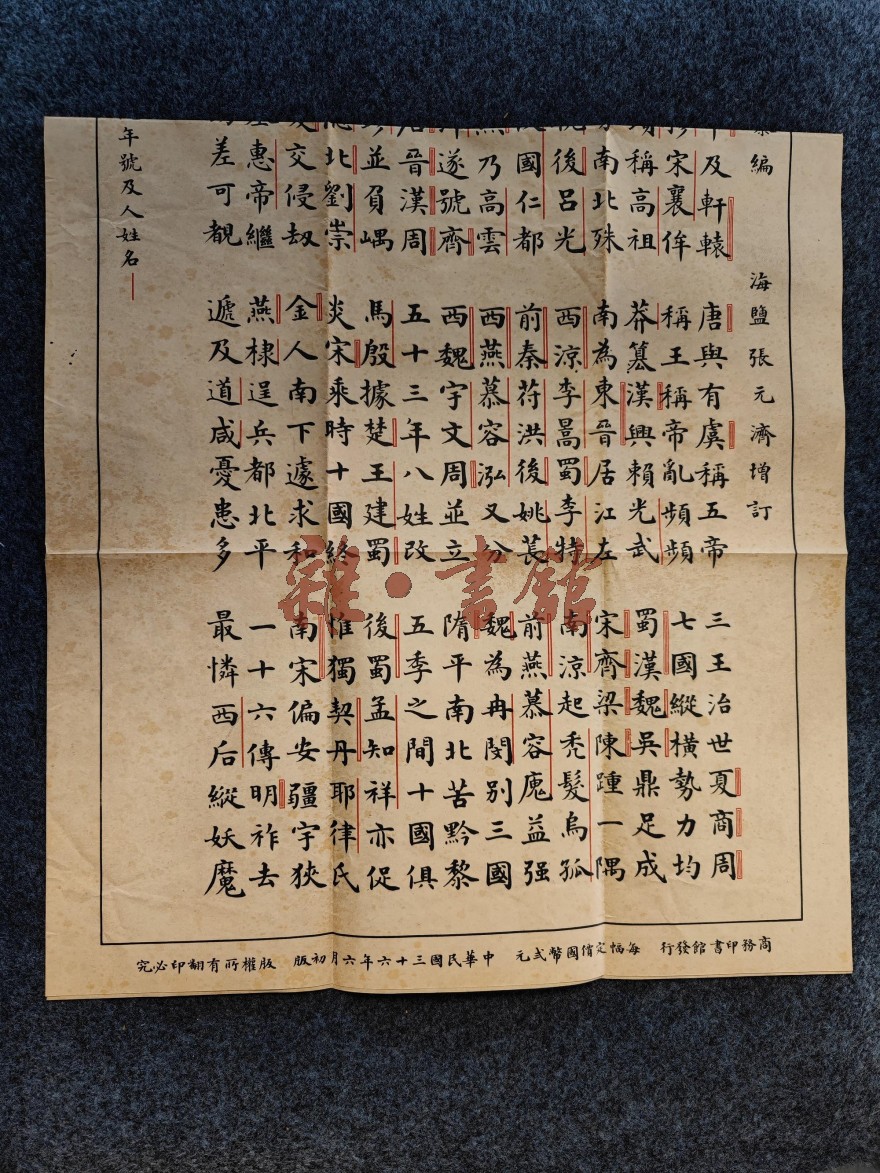 編 海鹽張元濟增訂
及軒轅 唐與有虞稱五帝 三王治世夏商周
宋襄侔 稱王稱帝亂頻頻 七國縱橫勢力均
稱高祖 莽篡漢興賴光武 蜀漢魏吳鼎足成
南北殊 南為東晉居江左 宋齊梁陳踵一隅
後呂光 西涼李暠蜀李特 南涼起禿髮烏孤
國仁都 前秦苻洪後姚萇 前燕慕容廆益强
乃高雲 西燕慕容泓又分 魏為冉閔别三國
遂號齊 西魏宇文周並立 隋平南北苦黔黎
晉漢周 五十三年八姓改 五季之間十國俱
並負嵎 馬殷據楚王建蜀 後蜀孟知祥亦促
北劉崇 炎宋乘時十國終 惟獨契丹耶律氏
交侵劫 金人南下遽求和 南宋偏安疆宇狹
惠帝繼 燕棣逞兵都北平 一十六傳明祚去
差可覩 遞及道咸憂患多 最憐西后縱妖魔
年號及人姓名
商務印書館發行 每幅定價國幣弍元 中華民國三十六年六月初版 版權所有翻印必究
雜·書館